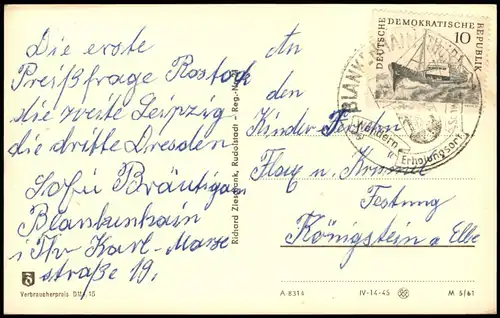 Die erste
Preißfrage Rostock
die zweite Leipzig
die dritte Dresden
Sofie Bräutigam
Blankenhain
i Thr Karl-Marx
straße 19,
Verbraucherpreis DM -,15
Richard Zieschank, Rudolstadt - Reg.-Nr.
An
den
Kinder-Fernsehen
Flax u. Krümel
Festung
Königstein a Elbe
A 8314 IV-14-45 M 5/61
DEUTSCHE DEMOKRATISCHE REPUBLIK
10
BLANKENHAIN
Wandern
Erholungsort